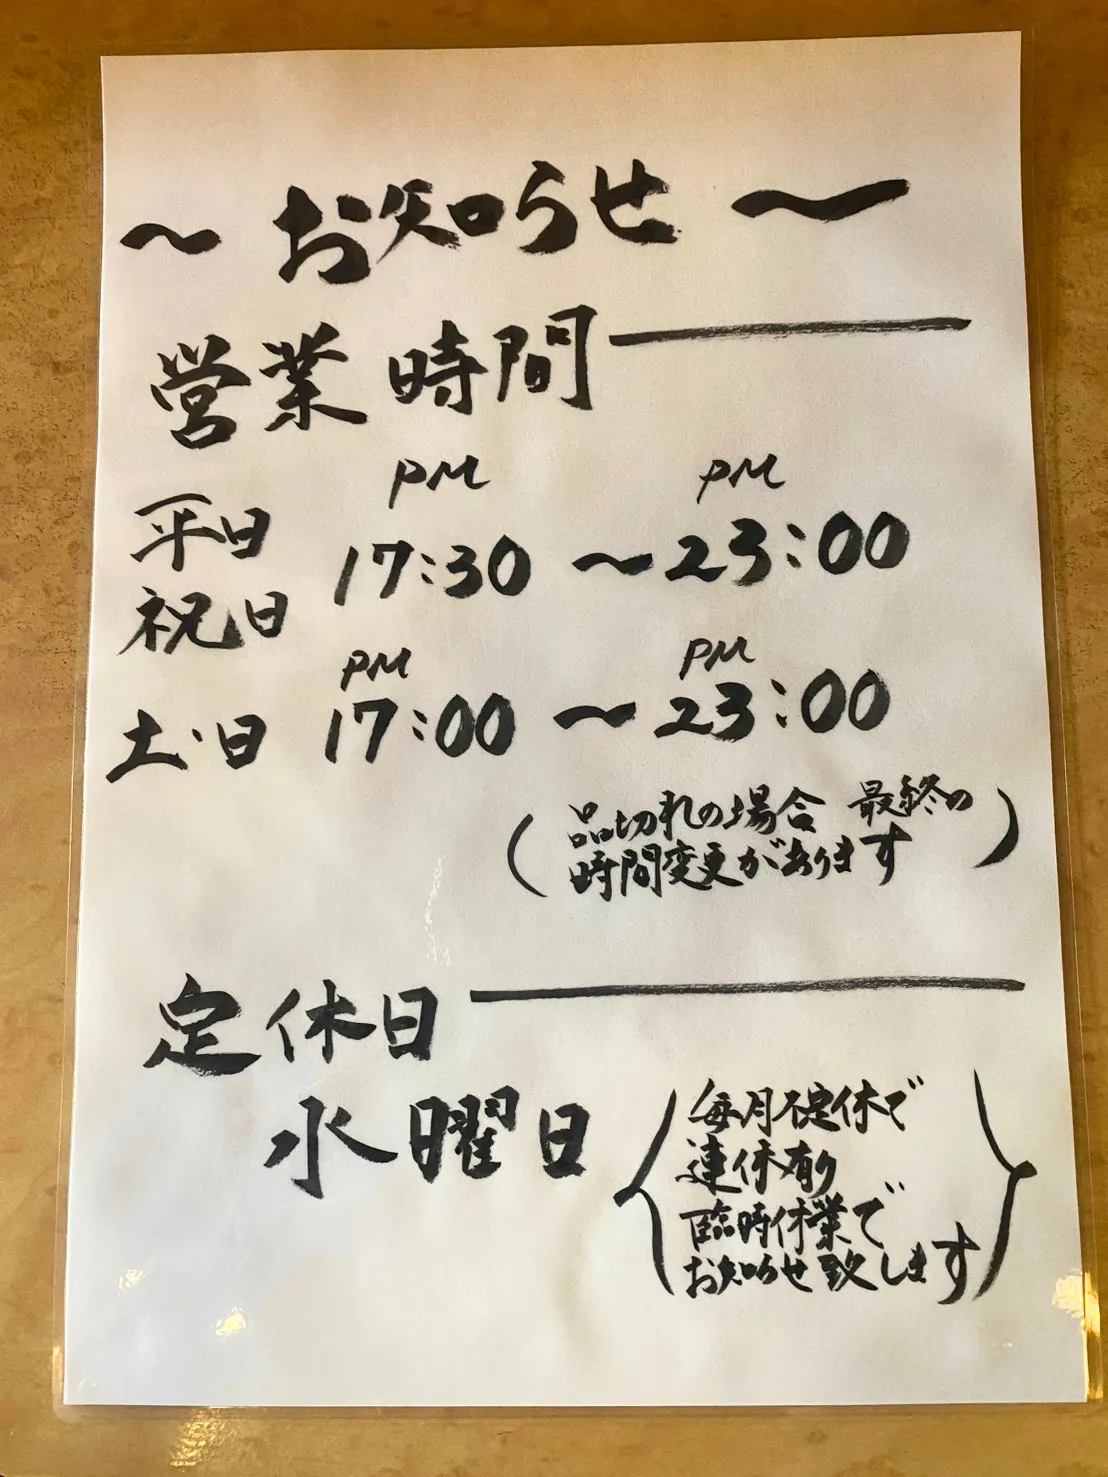 ～ お知らせ ～
営業時間
PM PM
平日 17:30 ～ 23:00
祝日
PM PM
土・日 17:00 ～ 23:00
(品切れの場合 最終の
時間変更があります)
定休日
水曜日
{毎月不定休で
連休有り
臨時休業で
お知らせ致します}